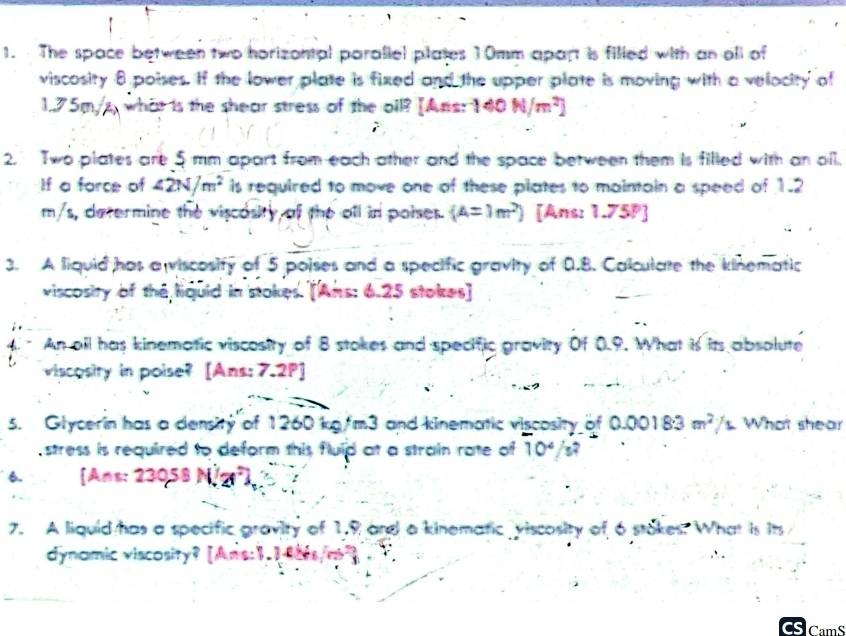 1. The space between two horizontal parallel plates 10mm apart is filled with an oil of
viscosity 8 poises. If the lower plate is fixed and the upper plate is moving with a velocity of
1.75m/s, what is the shear stress of the oil? [Ans: 140 N/m²]
2. Two plates are 5 mm apart from each other and the space between them is filled with an oil.
If a force of 42N/m² is required to move one of these plates to maintain a speed of 1.2
m/s, determine the viscosity of the oil in poises. (A=1m²) [Ans: 1.75P]
3. A liquid has a viscosity of 5 poises and a specific gravity of 0.8. Calculate the kinematic
viscosity of the liquid in stokes. [Ans: 6.25 stokes]
4. An oil has kinematic viscosity of 8 stokes and specific gravity Of 0.9. What is its absolute
viscosity in poise? [Ans: 7.2P]
5. Glycerin has a density of 1260 kg/m3 and kinematic viscosity of 0.00183 m²/s. What shear
stress is required to deform this fluid at a strain rate of 10⁴/s?
6. [Ans: 23058 N/m²]
7. A liquid has a specific gravity of 1.9 and a kinematic viscosity of 6 stokes. What is its
dynamic viscosity? [Ans:1.14Ns/m²]
CS CamS